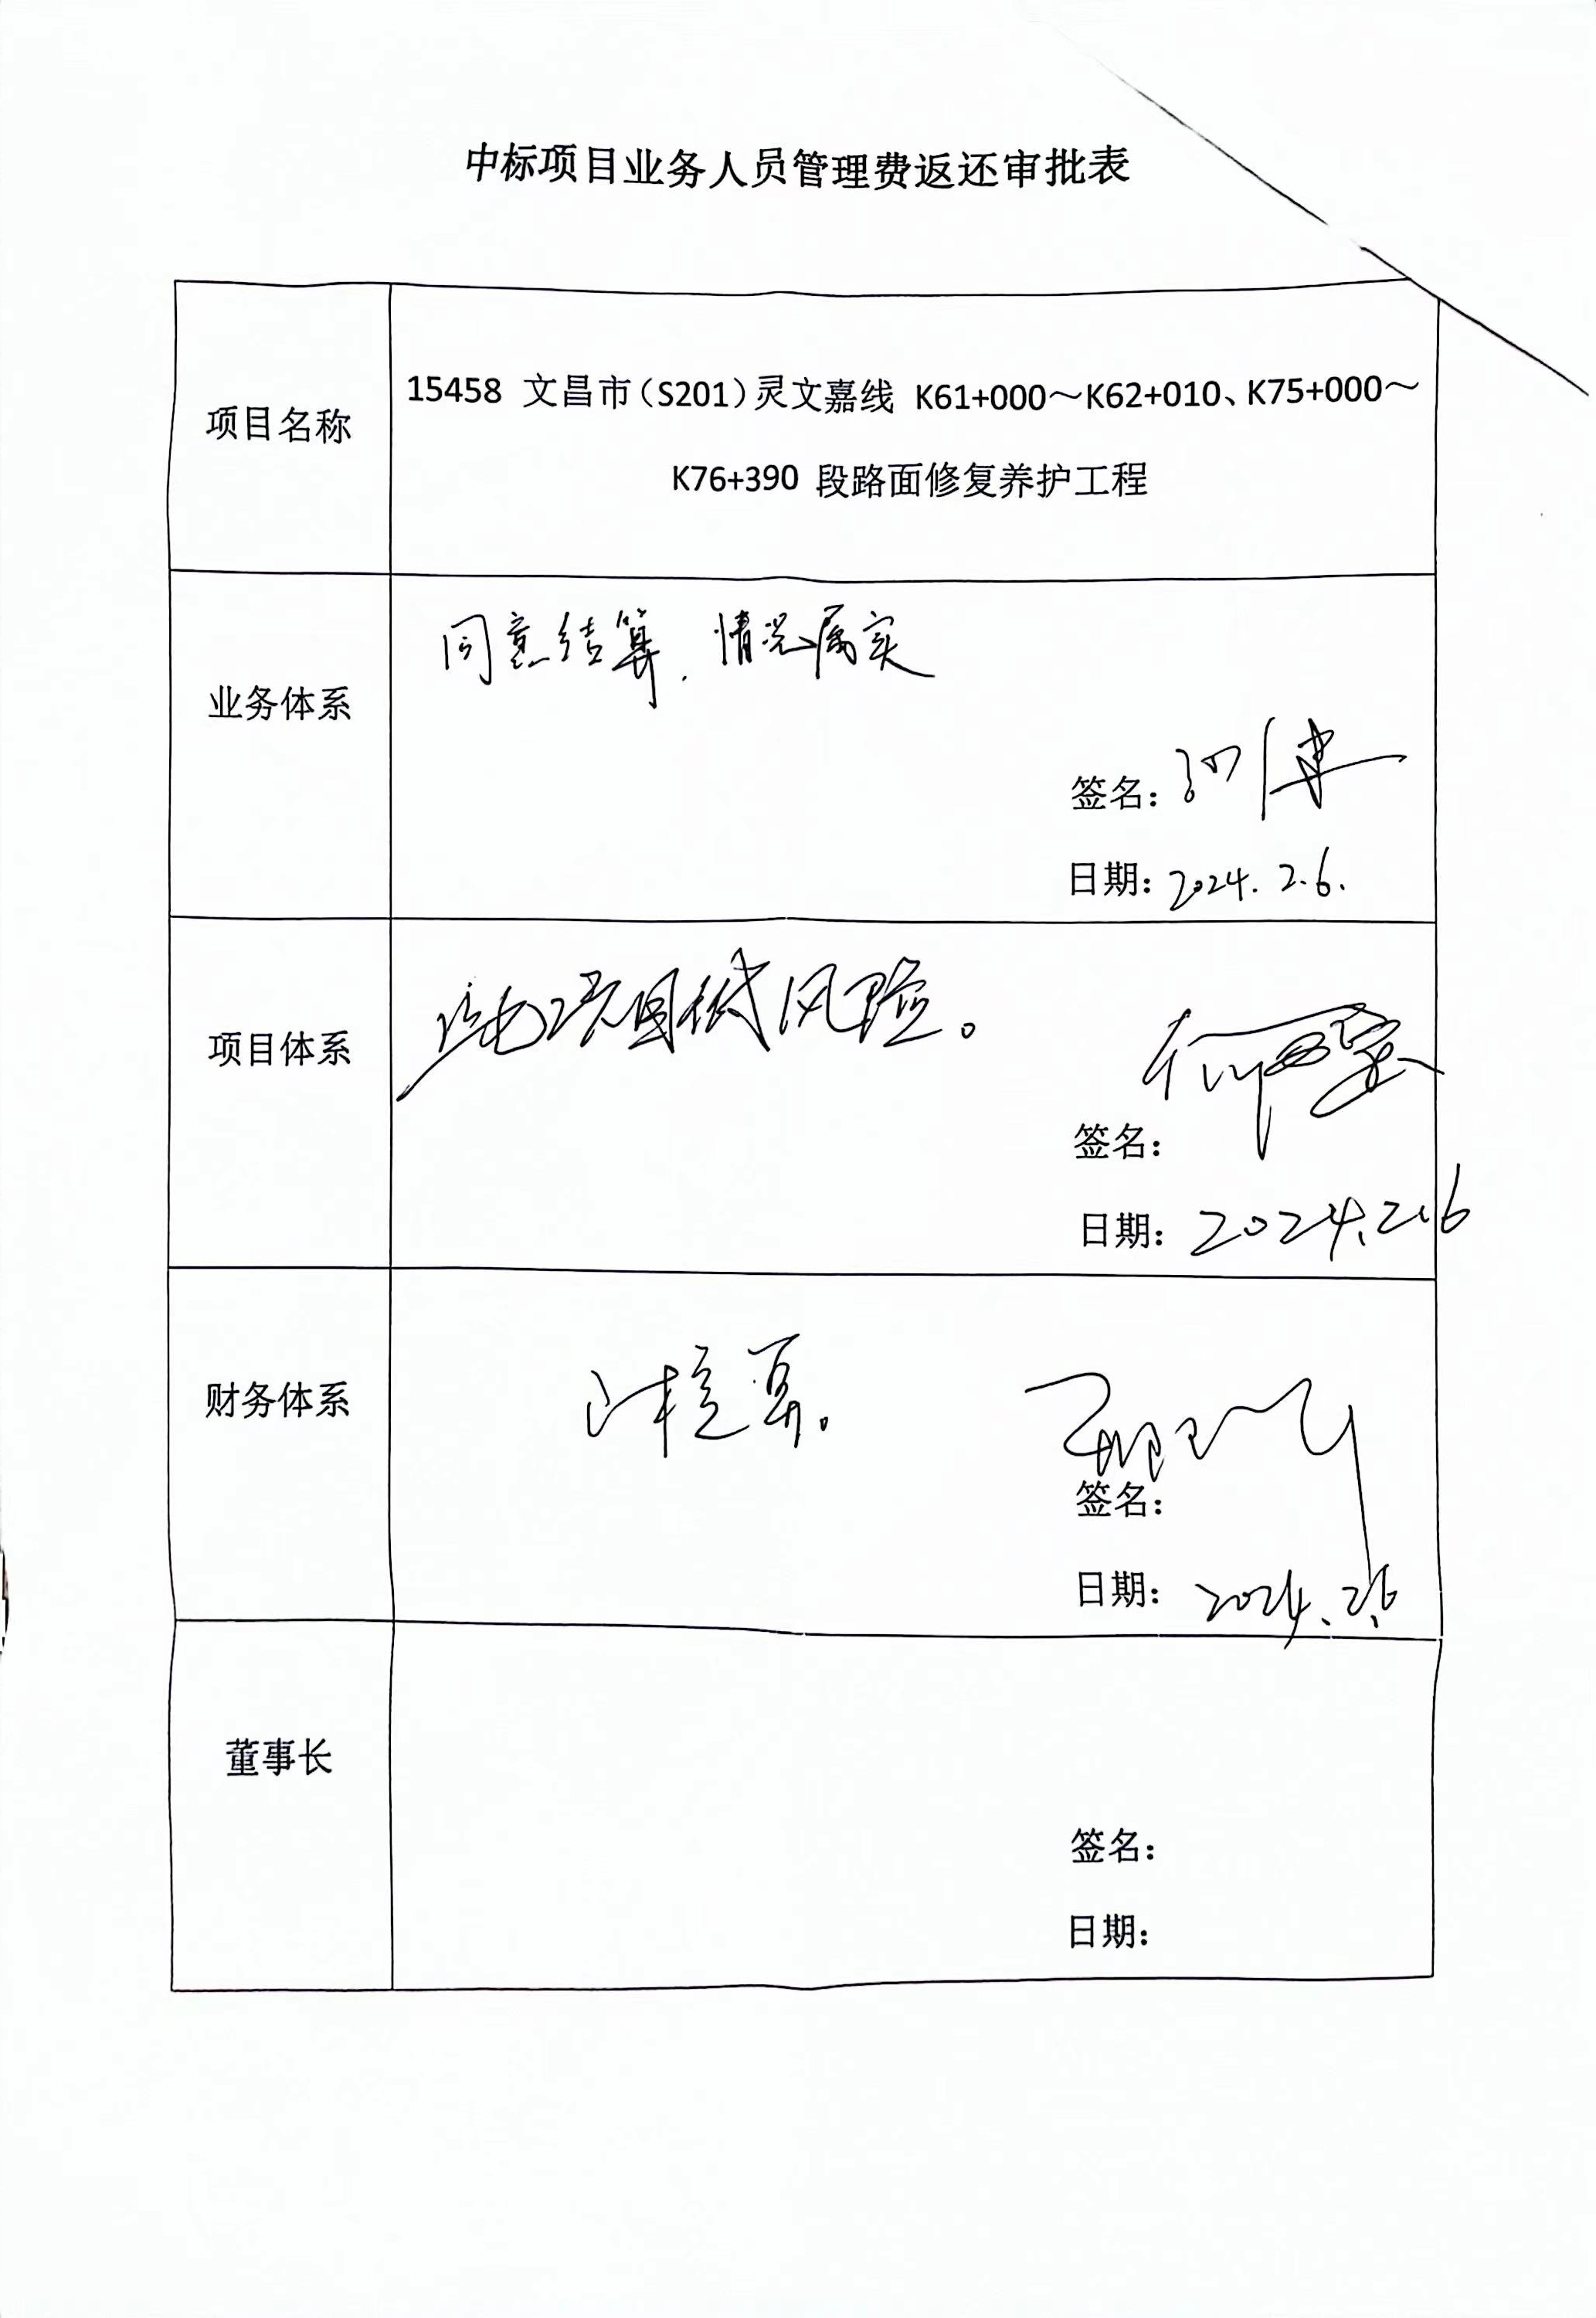 中标项目业务人员管理费返还审批表
项目名称
15458 文昌市（S201）灵文嘉线 K61+000～K62+010、K75+000～
K76+390 段路面修复养护工程
业务体系
同意结算，情况属实
签名：
日期：2024.2.6.
项目体系
项目低风险。
签名：
日期：2024.2.6
财务体系
签名：
日期：2024.2.6
董事长
签名：
日期：